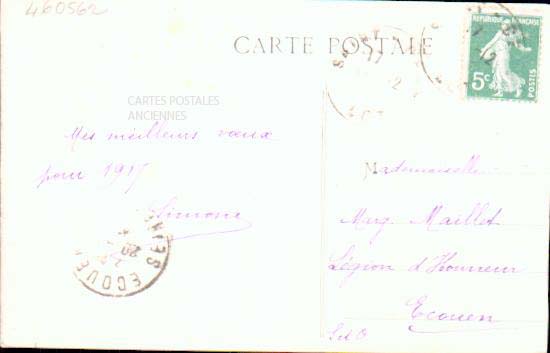 460562
CARTE POSTALE
REPUBLIQUE FRANÇAISE
5c
POSTES
CARTES POSTALES
ANCIENNES
Mes meilleurs vœux
pour 1917
Simone
Mademoiselle
Marg. Maillet
Légion d'Honneur
Ecouen
S et O
ECOUEN